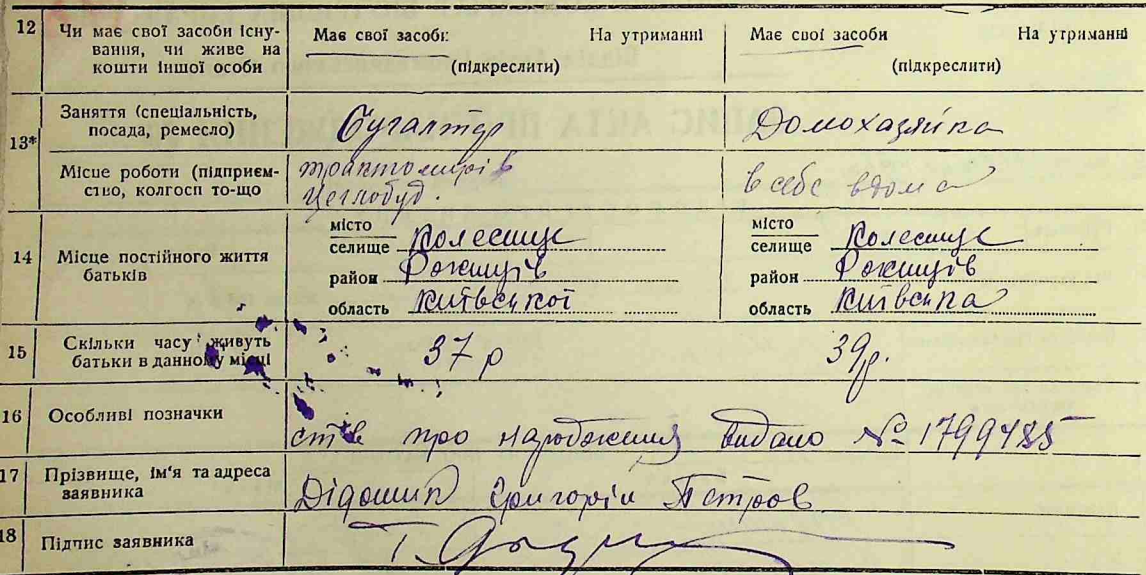 12 Чи має свої засоби існу-
вання, чи живе на
кошти іншої особи
Має свої засоби: На утриманні
(підкреслити)
Має свої засоби На утриманні
(підкреслити)
13* Заняття (спеціальність,
посада, ремесло)
Бугалтур
Домохазяйка
Місце роботи (підприєм-
ство, колгосп то-що
Цеглобуд.
в себе вдома
14 Місце постійного життя
батьків
місто
селище
район
область Київської
місто
селище
район
область Київська
15 Скільки часу живуть
батьки в данному місці
37 р
39 р.
16 Особливі позначки
про народження видано № 1799485
17 Прізвище, ім'я та адреса
заявника
Григорій Петров
18 Підпис заявника